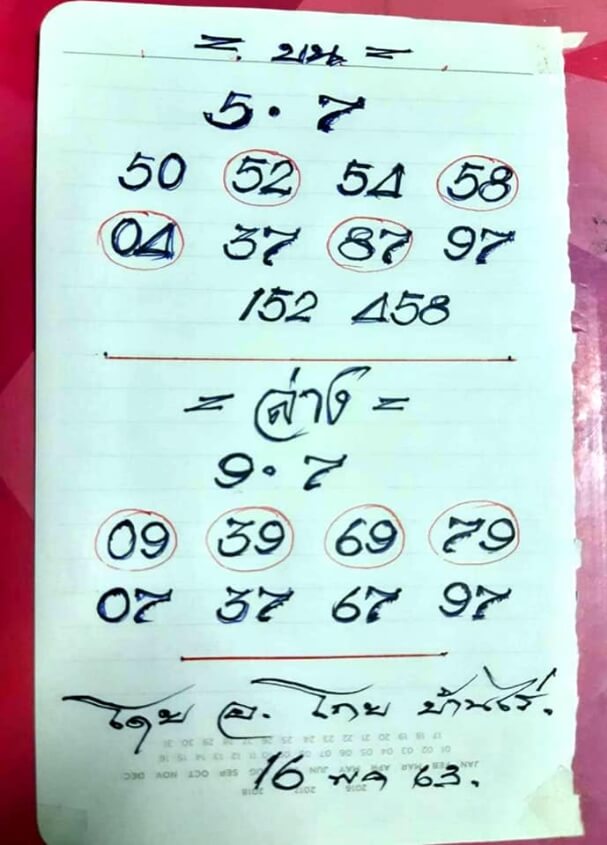 = บน =
5 • 7
50 52 54 58
04 37 87 97
152 458
= ล่าง =
9 • 7
09 39 69 79
07 37 67 97
โดย อ. โกย บ้านไร่.
16 พค 63.